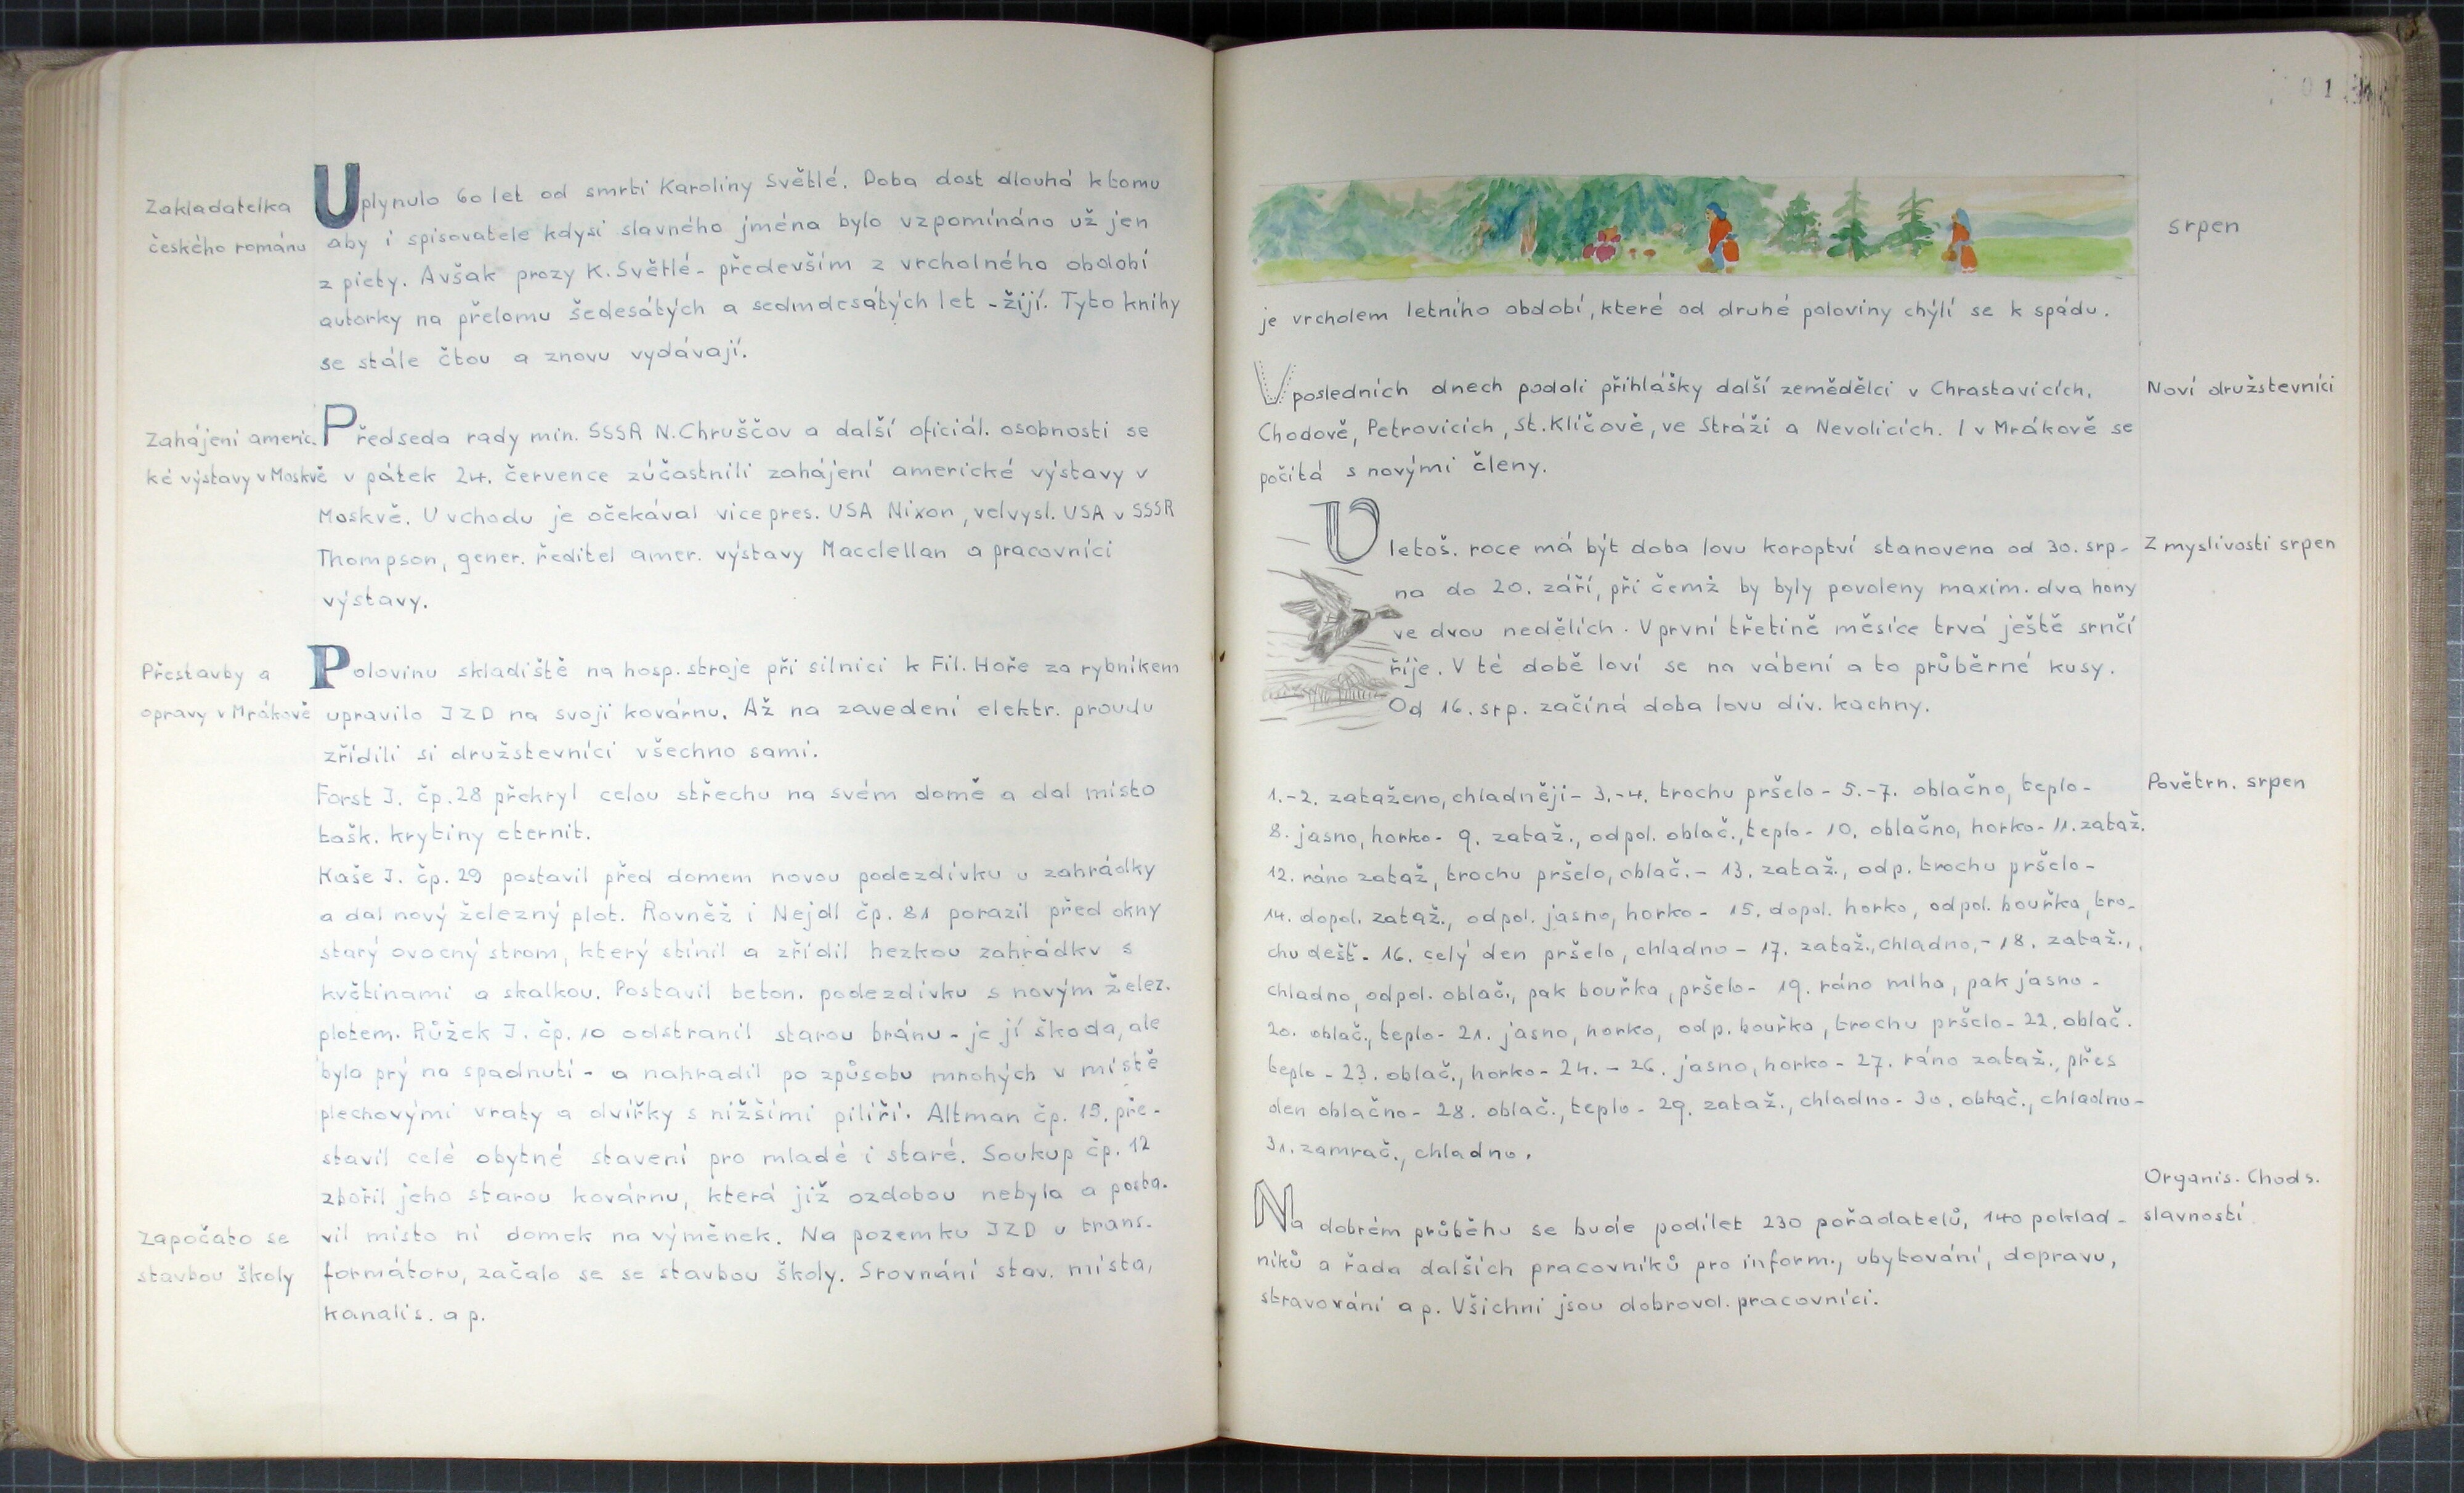 Zakladatelka
českého románu
Uplynulo 60 let od smrti Karoliny Světlé. Doba dost dlouhá k tomu
aby i spisovatele kdysi slavného jména bylo vzpomínáno už jen
z piety. Avšak prozy K. Světlé - především z vrcholného období
autorky na přelomu šedesátých a sedmdesátých let - žijí. Tyto knihy
se stále čtou a znovu vydávají.
Zahájení americ.
ké výstavy v Moskvě
Předseda rady min. SSSR N. Chruščov a další oficiál. osobnosti se
v pátek 24. července zúčastnili zahájení americké výstavy v
Moskvě. U vchodu je očekával vicepres. USA Nixon, velvysl. USA v SSSR
Thompson, gener. ředitel amer. výstavy Macclellan a pracovníci
výstavy.
Přestavby a
opravy v Mrákově
Polovinu skladiště na hosp. stroje při silnici k Fil. Hoře za rybníkem
upravilo JZD na svoji kovárnu. Až na zavedení elektr. proudu
zřídili si družstevníci všechno sami.
Forst J. čp. 28 překryl celou střechu na svém domě a dal místo
tašk. krytiny eternit.
Kaše J. čp. 29 postavil před domem novou podezdívku u zahrádky
a dal nový železný plot. Rovněž i Nejdl čp. 81 porazil před okny
starý ovocný strom, který stínil a zřídil hezkou zahrádku s
květinami a skalkou. Postavil beton. podezdívku s novým želez.
plotem. Růžek J. čp. 10 odstranil starou bránu - je jí škoda, ale
byla prý na spadnutí - a nahradil po způsobu mnohých v místě
plechovými vraty a dvířky s nižšími pilíři. Altman čp. 15. pře-
stavil celé obytné stavení pro mladé i staré. Soukup čp. 12
zbořil jeho starou kovárnu, která již ozdobou nebyla a posta-
vil místo ní domek na výměnek. Na pozemku JZD u trans-
formátoru, začalo se se stavbou školy. Srovnání stav. místa,
kanalis. a p.
Započato se
stavbou školy
01
srpen
je vrcholem letního období, které od druhé poloviny chýlí se k spádu.
V posledních dnech podali přihlášky další zemědělci v Chrastavicích,
Chodově, Petrovicích, St. Klíčově, ve Stráži a Nevolicích. I v Mrákově se
počítá s novými členy.
Noví družstevníci
V letoš. roce má být doba lovu koroptví stanovena od 30. srp-
na do 20. září, při čemž by byly povoleny maxim. dva hony
ve dvou nedělích. V první třetině měsíce trvá ještě srnčí
říje. V té době loví se na vábení a to průběrné kusy.
Od 16. srp. začíná doba lovu div. kachny.
Z myslivosti srpen
1.-2. zataženo, chladněji - 3.-4. trochu pršelo - 5.-7. oblačno, teplo -
8. jasno, horko - 9. zataž., odpol. oblač., teplo - 10. oblačno, horko - 11. zataž.
12. ráno zataž, trochu pršelo, oblač. - 13. zataž., odp. trochu pršelo -
14. dopol. zataž., odpol. jasno, horko - 15. dopol. horko, odpol. bouřka, tro-
chu dešť - 16. celý den pršelo, chladno - 17. zataž., chladno, - 18. zataž.,
chladno, odpol. oblač., pak bouřka, pršelo - 19. ráno mlha, pak jasno -
20. oblač., teplo - 21. jasno, horko, odp. bouřka, trochu pršelo - 22. oblač.
teplo - 23. oblač., horko - 24. - 26. jasno, horko - 27. ráno zataž., přes
den oblačno - 28. oblač., teplo - 29. zataž., chladno - 30. oblač., chladno -
31. zamrač., chladno.
Povětrn. srpen
Na dobrém průběhu se bude podílet 230 pořadatelů, 140 poklad-
níků a řada dalších pracovníků pro inform., ubytování, dopravu,
stravování a p. Všichni jsou dobrovol. pracovníci.
Organis. Chods.
slavností